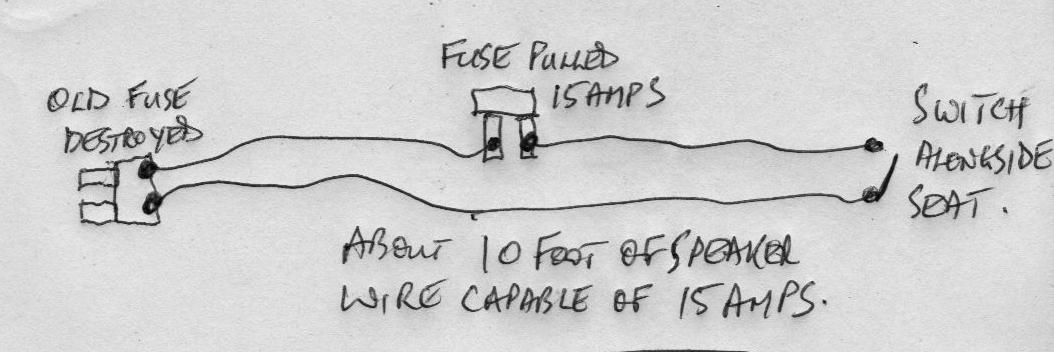 FUSE PULLED
15 AMPS
OLD FUSE
DESTROYED
SWITCH
ALONGSIDE
SEAT.
ABOUT 10 FOOT OF SPEAKER
WIRE CAPABLE OF 15 AMPS.